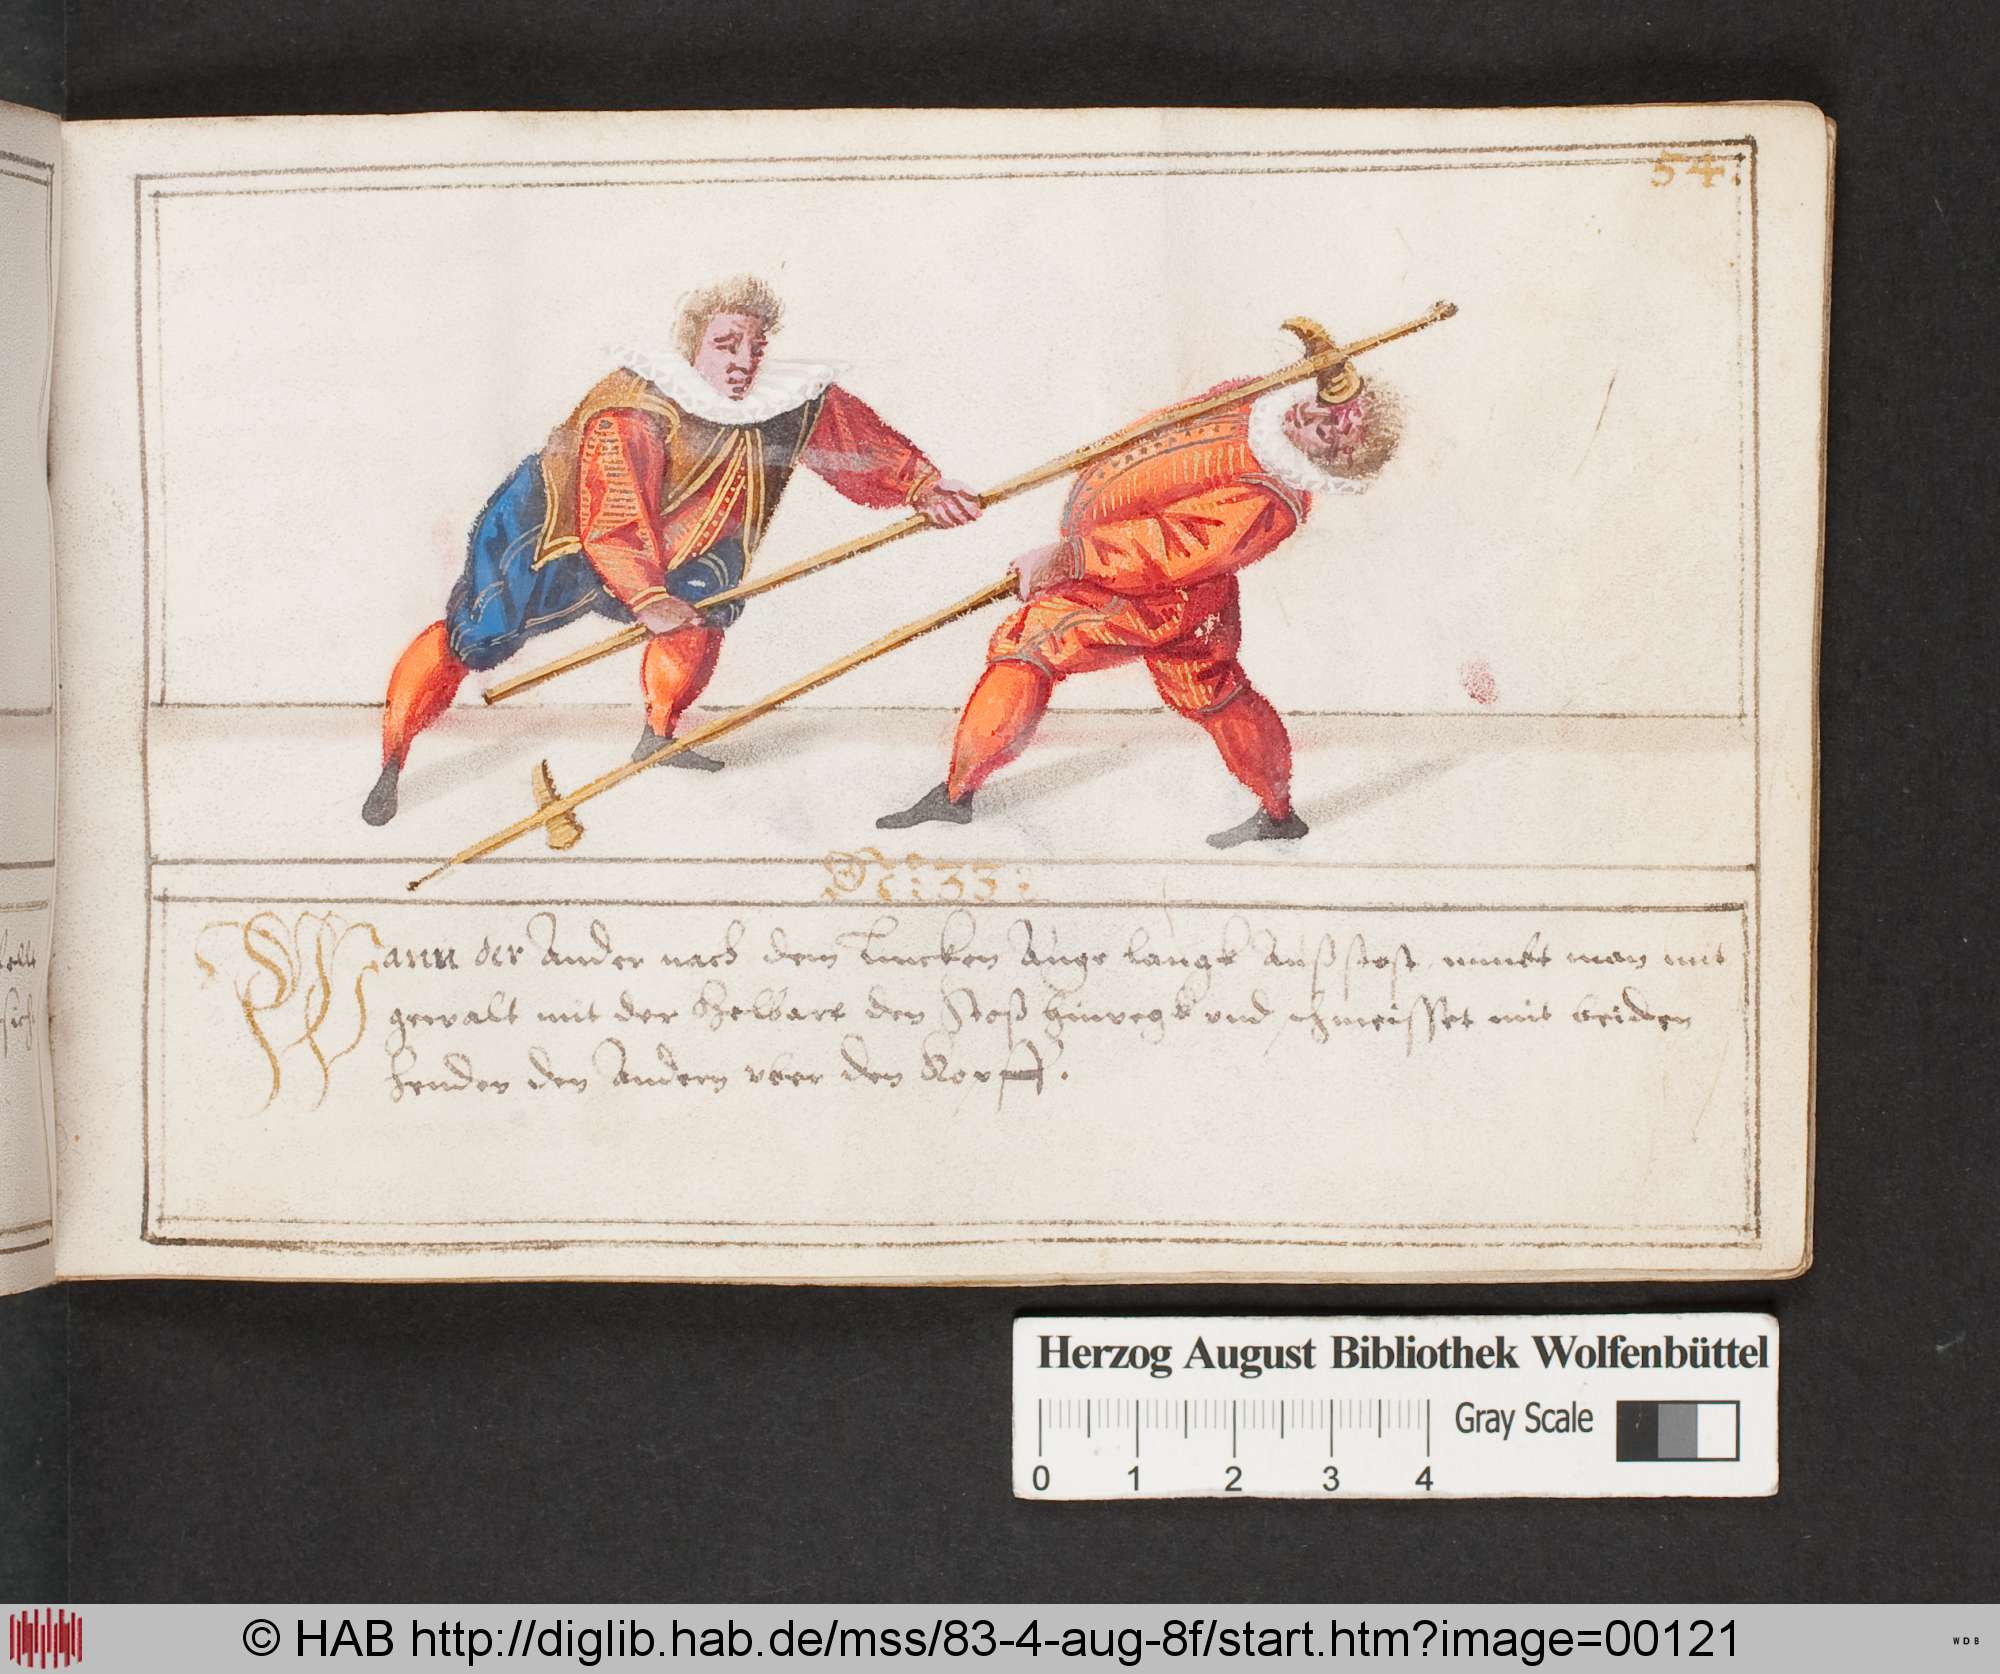 54:
N: 33:
Wann der Ander nach dem Lincken Auge langk Außstost nimbt man mit
gewalt mit der Helbart den stoß hinwegk vnd schmeisset mit beiden
henden den Andern vber den Kopff.
Herzog August Bibliothek Wolfenbüttel
Gray Scale
0 1 2 3 4
© HAB http://diglib.hab.de/mss/83-4-aug-8f/start.htm?image=00121
WDB